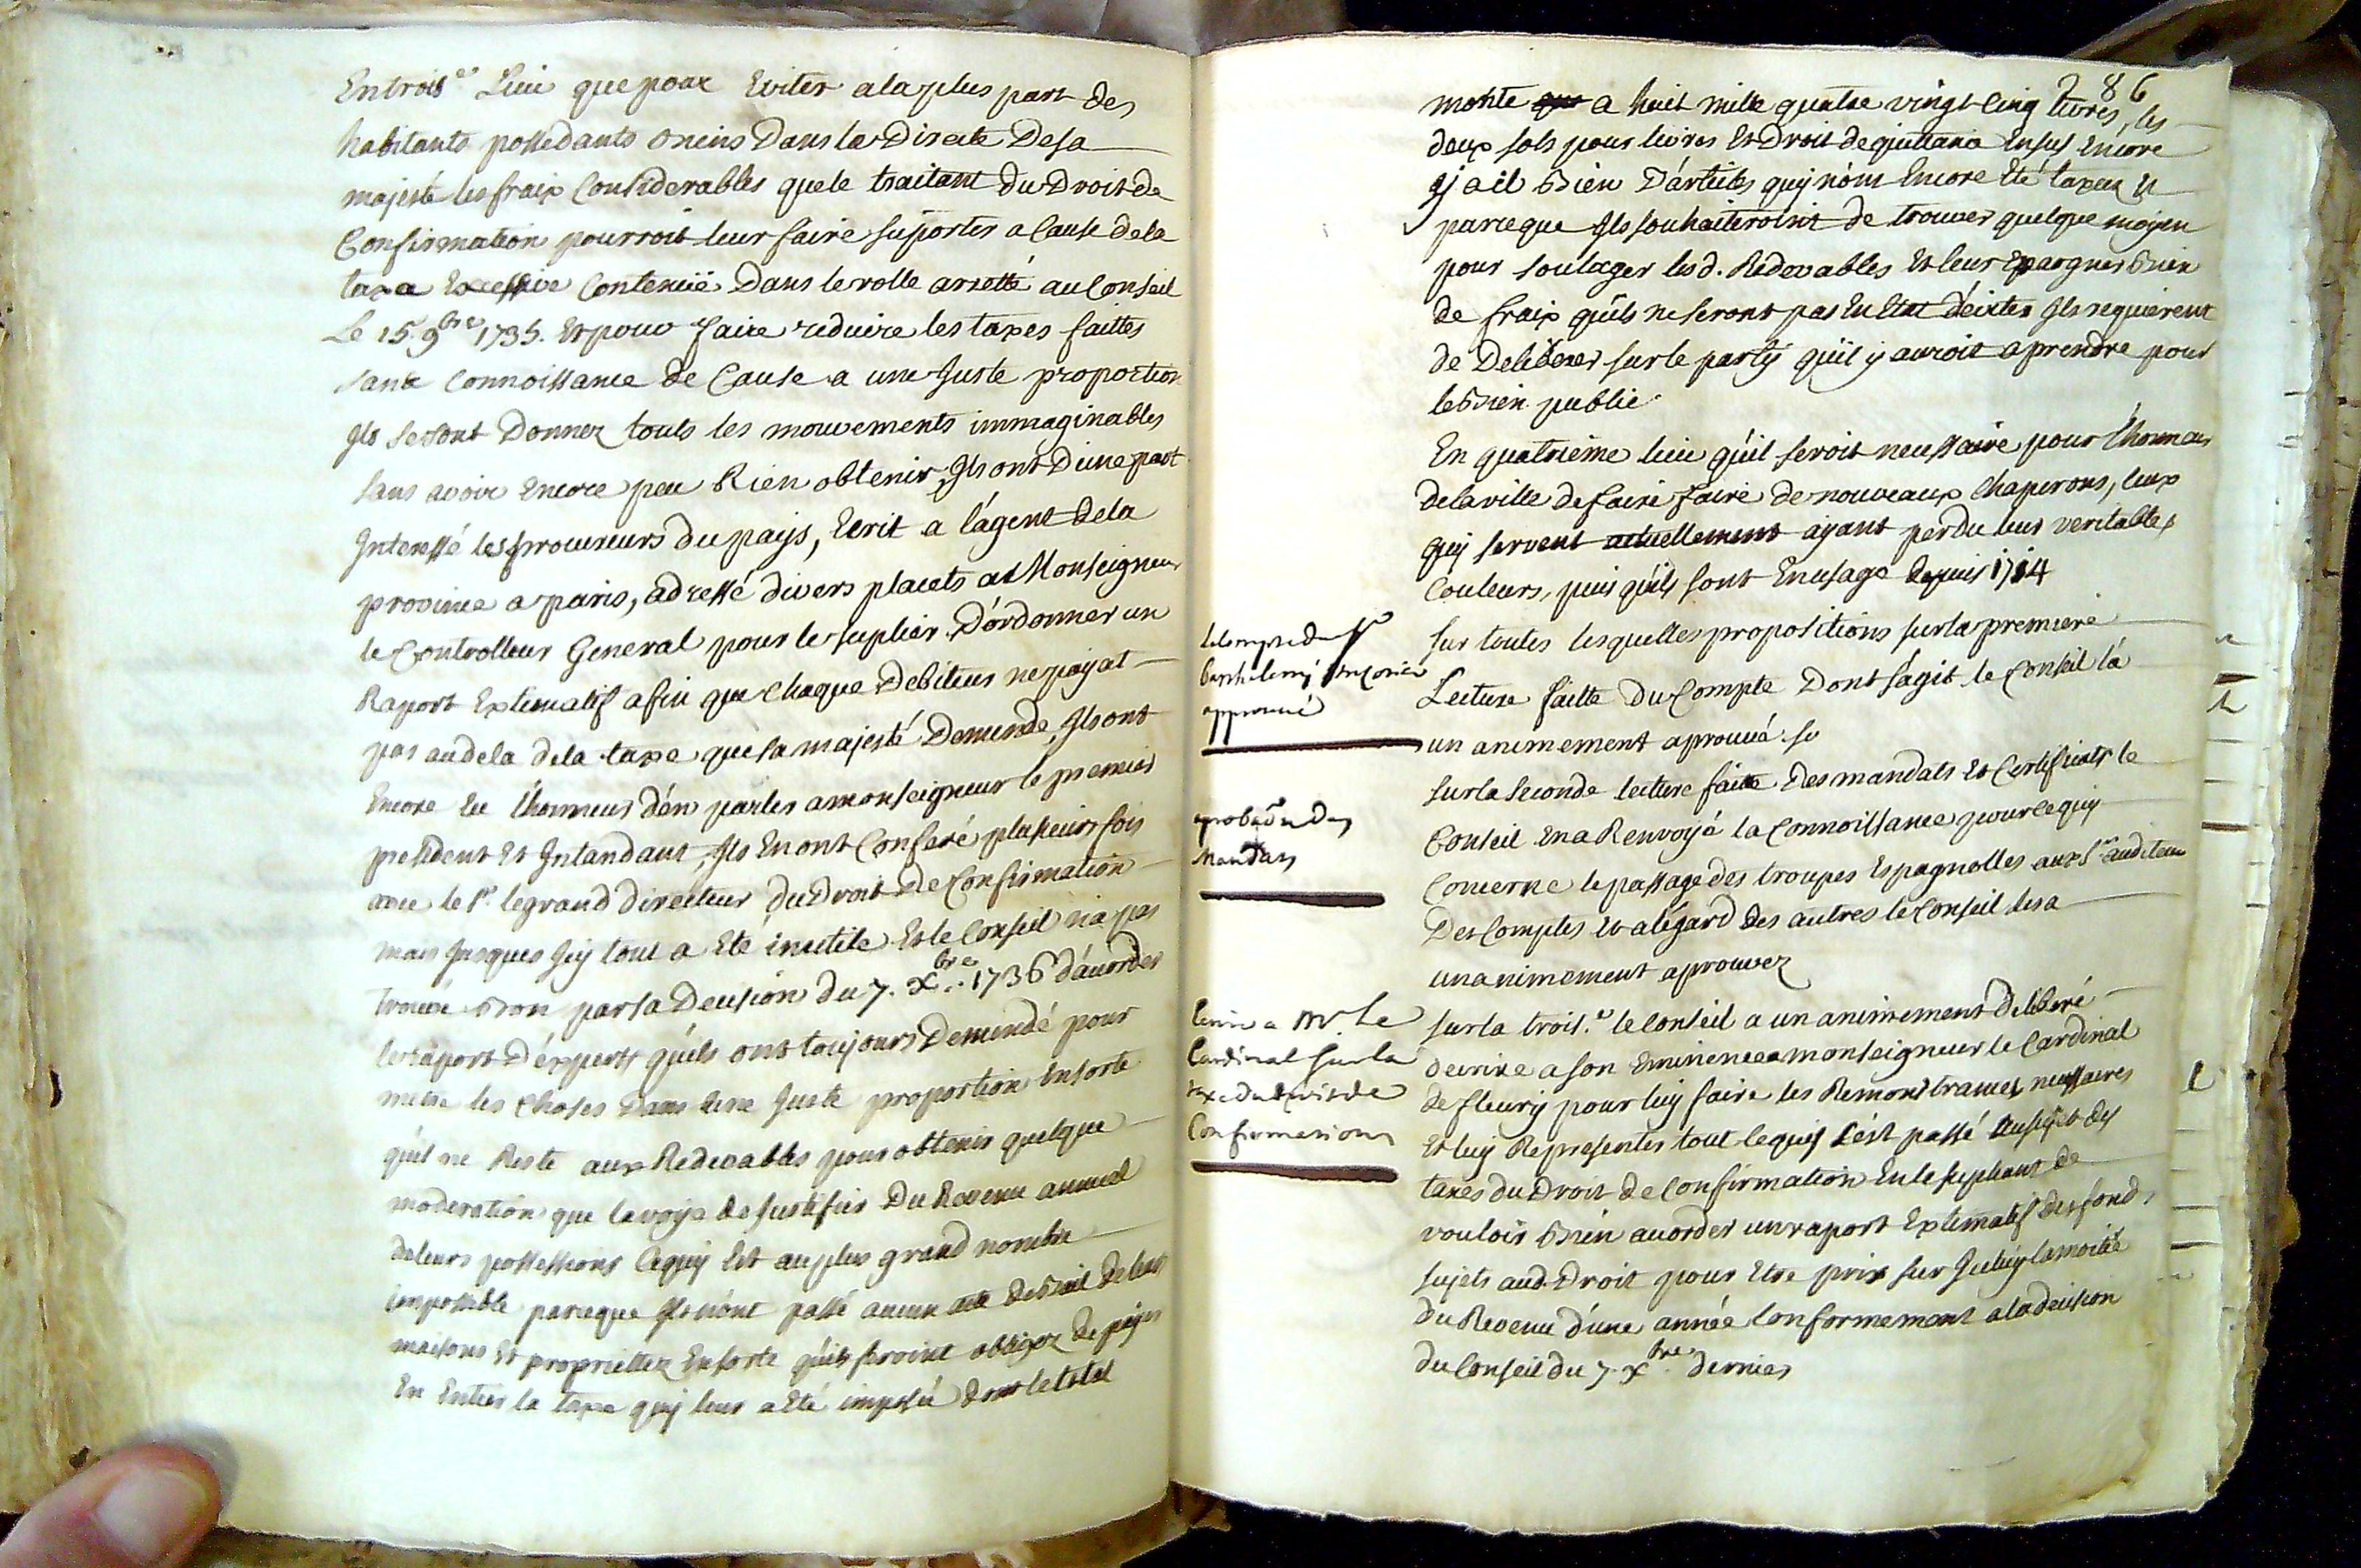 Entrois.e Lieu que pour Eviter a la plus part des
habitants possedants biens Dans la Directe De sa
majesté les fraix Considerables que le traitant du Droit de
Confirmation pourroit leur faire suporter a Cause de la
taxe Excessive Contenüe Dans le rolle arretté au Conseil
Le 15. 9bre 1735. Et pour faire reduire les taxes faittes
sans Connoissance de Cause a une Juste proportion
Ils se sont Donnez touts les mouvements immaginables
sans avoir Encore peu Rien obtenir, Ils ont D'une part
Interessé les procureurs du pays, Ecrit a l'agent de la
province a paris, adressé divers placets a Monseigneur
le Controlleur General pour le suplier D'ordonner un
Raport Extimatif afin que Chaque Debiteur ne payat
pas audela de la taxe que sa majesté Demende, Ils ont
Encore Eu l'honneur d'en parler a monseigneur le premier
president Et Intendant, Ils En ont Conferé plusieurs fois
avec le Sr. legrand directeur du Droit De Confirmation
mais Jusques Icy tout a Eté inutile Et le Conseil n'a pas
trouvé Bon par sa Decision du 7. Xbre. 1736 d'acorder
le raport D'experts qu'ils ont toujours Demendé pour
mettre les Choses Dans une Juste proportion Ensorte
qu'il ne Reste aux Redevables pour obtenir quelque
moderation que la voye de Justifier Du Revenu annuel
de leurs possessions Ce quy Est au plus grand nombre
impossible parceque Ils n'ont passé aucun acte de Bail de leurs
maisons Et proprietez Ensorte qu'ils seroint obligez de payer
En Entier la taxe quy leur a Eté imposée dont le total
286
monte a huit mille quatre vingt Cinq livres, les
deux sols pour livres Et Droit de quittance Ensus Encore
y a il Bien D'articles quy n'ont Encore Eté taxez Et
parceque Ils souhaiteroint de trouver quelque moyen
pour soulager lesd. Redevables Et leur Epargner Bien
de fraix qu'ils ne seront pas En Etat d'eviter Ils requierent
de Deliberer sur le party qu'il y auroit a prendre pour
le Bien public
En quatrieme lieu qu'il seroit necessaire pour l'honneur
de la ville de faire faire de nouveaux Chaperons, Ceux
quy servent actuellement ayant perdu leurs veritables
Couleurs, puis qu'ils sont En usage depuis 1714
sur toutes lesquelles propositions sur la premiere
Le compte du Sr
Barthelemy
approuvé
Lecture faitte Du Compte Dont s'agit le Conseil l'a
un animement aprouvé
sur la seconde lecture faitte Des mandats Et Certificats le
aprobaon des
Mandats
Conseil En a Renvoyé la Connoissance pour ce quy
Concerne le passage des troupes Espagnolles aux Srs auditeurs
Des Comptes Et a l'egard des autres le Conseil les a
unanimement aprouvez
Ecrire a Mr. Le
Cardinal sur la
taxe du droit de
Confirmation
sur la trois.e le Conseil a un animement Deliberé
d'ecrire a son Eminence monseigneur le Cardinal
de fleury pour luy faire les Remontrances necessaires
Et luy Representer tout ce quy s'est passé au sujet des
taxes du Droit de Confirmation En le supliant de
vouloir Bien acorder un raport Extimatif des fonds
sujets aud. Droit pour Etre prix sur Iceluy la moitié
du Revenu d'une année Conformement a la decision
du Conseil du 7. Xbre. dernier